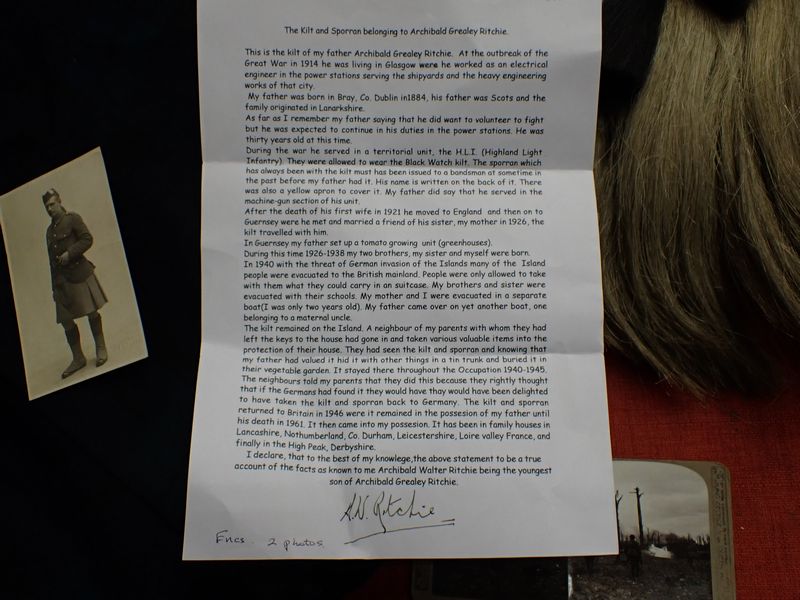 The Kilt and Sporran belonging to Archibald Grealey Ritchie.
This is the kilt of my father Archibald Grealey Ritchie. At the outbreak of the
Great War in 1914 he was living in Glasgow were he worked as an electrical
engineer in the power stations serving the shipyards and the heavy engineering
works of that city.
My father was born in Bray, Co. Dublin in1884, his father was Scots and the
family originated in Lanarkshire.
As far as I remember my father saying that he did want to volunteer to fight
but he was expected to continue in his duties in the power stations. He was
thirty years old at this time.
During the war he served in a territorial unit, the H.L.I. (Highland Light
Infantry). They were allowed to wear the Black Watch kilt. The sporran which
has always been with the kilt must has been issued to a bandsman at sometime in
the past before my father had it. His name is written on the back of it. There
was also a yellow apron to cover it. My father did say that he served in the
machine-gun section of his unit.
After the death of his first wife in 1921 he moved to England and then on to
Guernsey were he met and married a friend of his sister, my mother in 1926, the
kilt travelled with him.
In Guernsey my father set up a tomato growing unit (greenhouses).
During this time 1926-1938 my two brothers, my sister and myself were born.
In 1940 with the threat of German invasion of the Islands many of the Island
people were evacuated to the British mainland. People were only allowed to take
with them what they could carry in an suitcase. My brothers and sister were
evacuated with their schools. My mother and I were evacuated in a separate
boat(I was only two years old). My father came over on yet another boat, one
belonging to a maternal uncle.
The kilt remained on the Island. A neighbour of my parents with whom they had
left the keys to the house had gone in and taken various valuable items into the
protection of their house. They had seen the kilt and sporran and knowing that
my father had valued it hid it with other things in a tin trunk and buried it in
their vegetable garden. It stayed there throughout the Occupation 1940-1945.
The neighbours told my parents that they did this because they rightly thought
that if the Germans had found it they would have thay would have been delighted
to have taken the kilt and sporran back to Germany. The kilt and sporran
returned to Britain in 1946 were it remained in the possesion of my father until
his death in 1961. It then came into my possesion. It has been in family houses in
Lancashire, Nothumberland, Co. Durham, Leicestershire, Loire valley France, and
finally in the High Peak, Derbyshire.
I declare, that to the best of my knowlege,the above statement to be a true
account of the facts as known to me Archibald Walter Ritchie being the youngest
son of Archibald Grealey Ritchie.
A.W. Ritchie
Encs. 2 photos